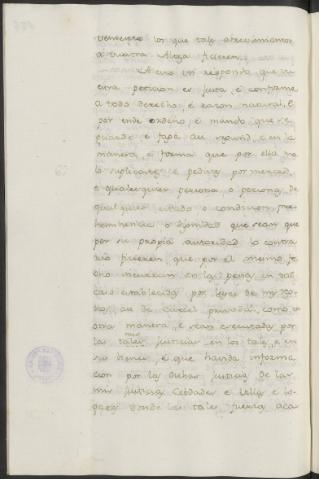 los que tales atrevimientos
a vuestra Alteza ficieren.
A esto vos respondo que vu
estra peticion es justa, e conforme
a todo derecho, e razon natural, e
por ende ordeno e mando que se
guarde e faga asi segund, e en la
manera, e forma que por ella me
lo suplicares e pedis por merced,
e qualesquier persona o personas de
qualquier estado o condicion, pre
heminencia o dignidad que sean que
por su propia autoridad lo contra
rio ficieren que por el mismo fe
cho incurran en las penas en tal
caso establecidas por leyes de mys Reg
nos, asi de carcel privada, como en
otra manera, e sean executadas por
las tales mis justicias en los tales, e en
sus bienes, e que havida informa
cion por las dichas justicias de las
mis justicias Cebdades e Villas e lo
gares donde las tales fuerzas aca